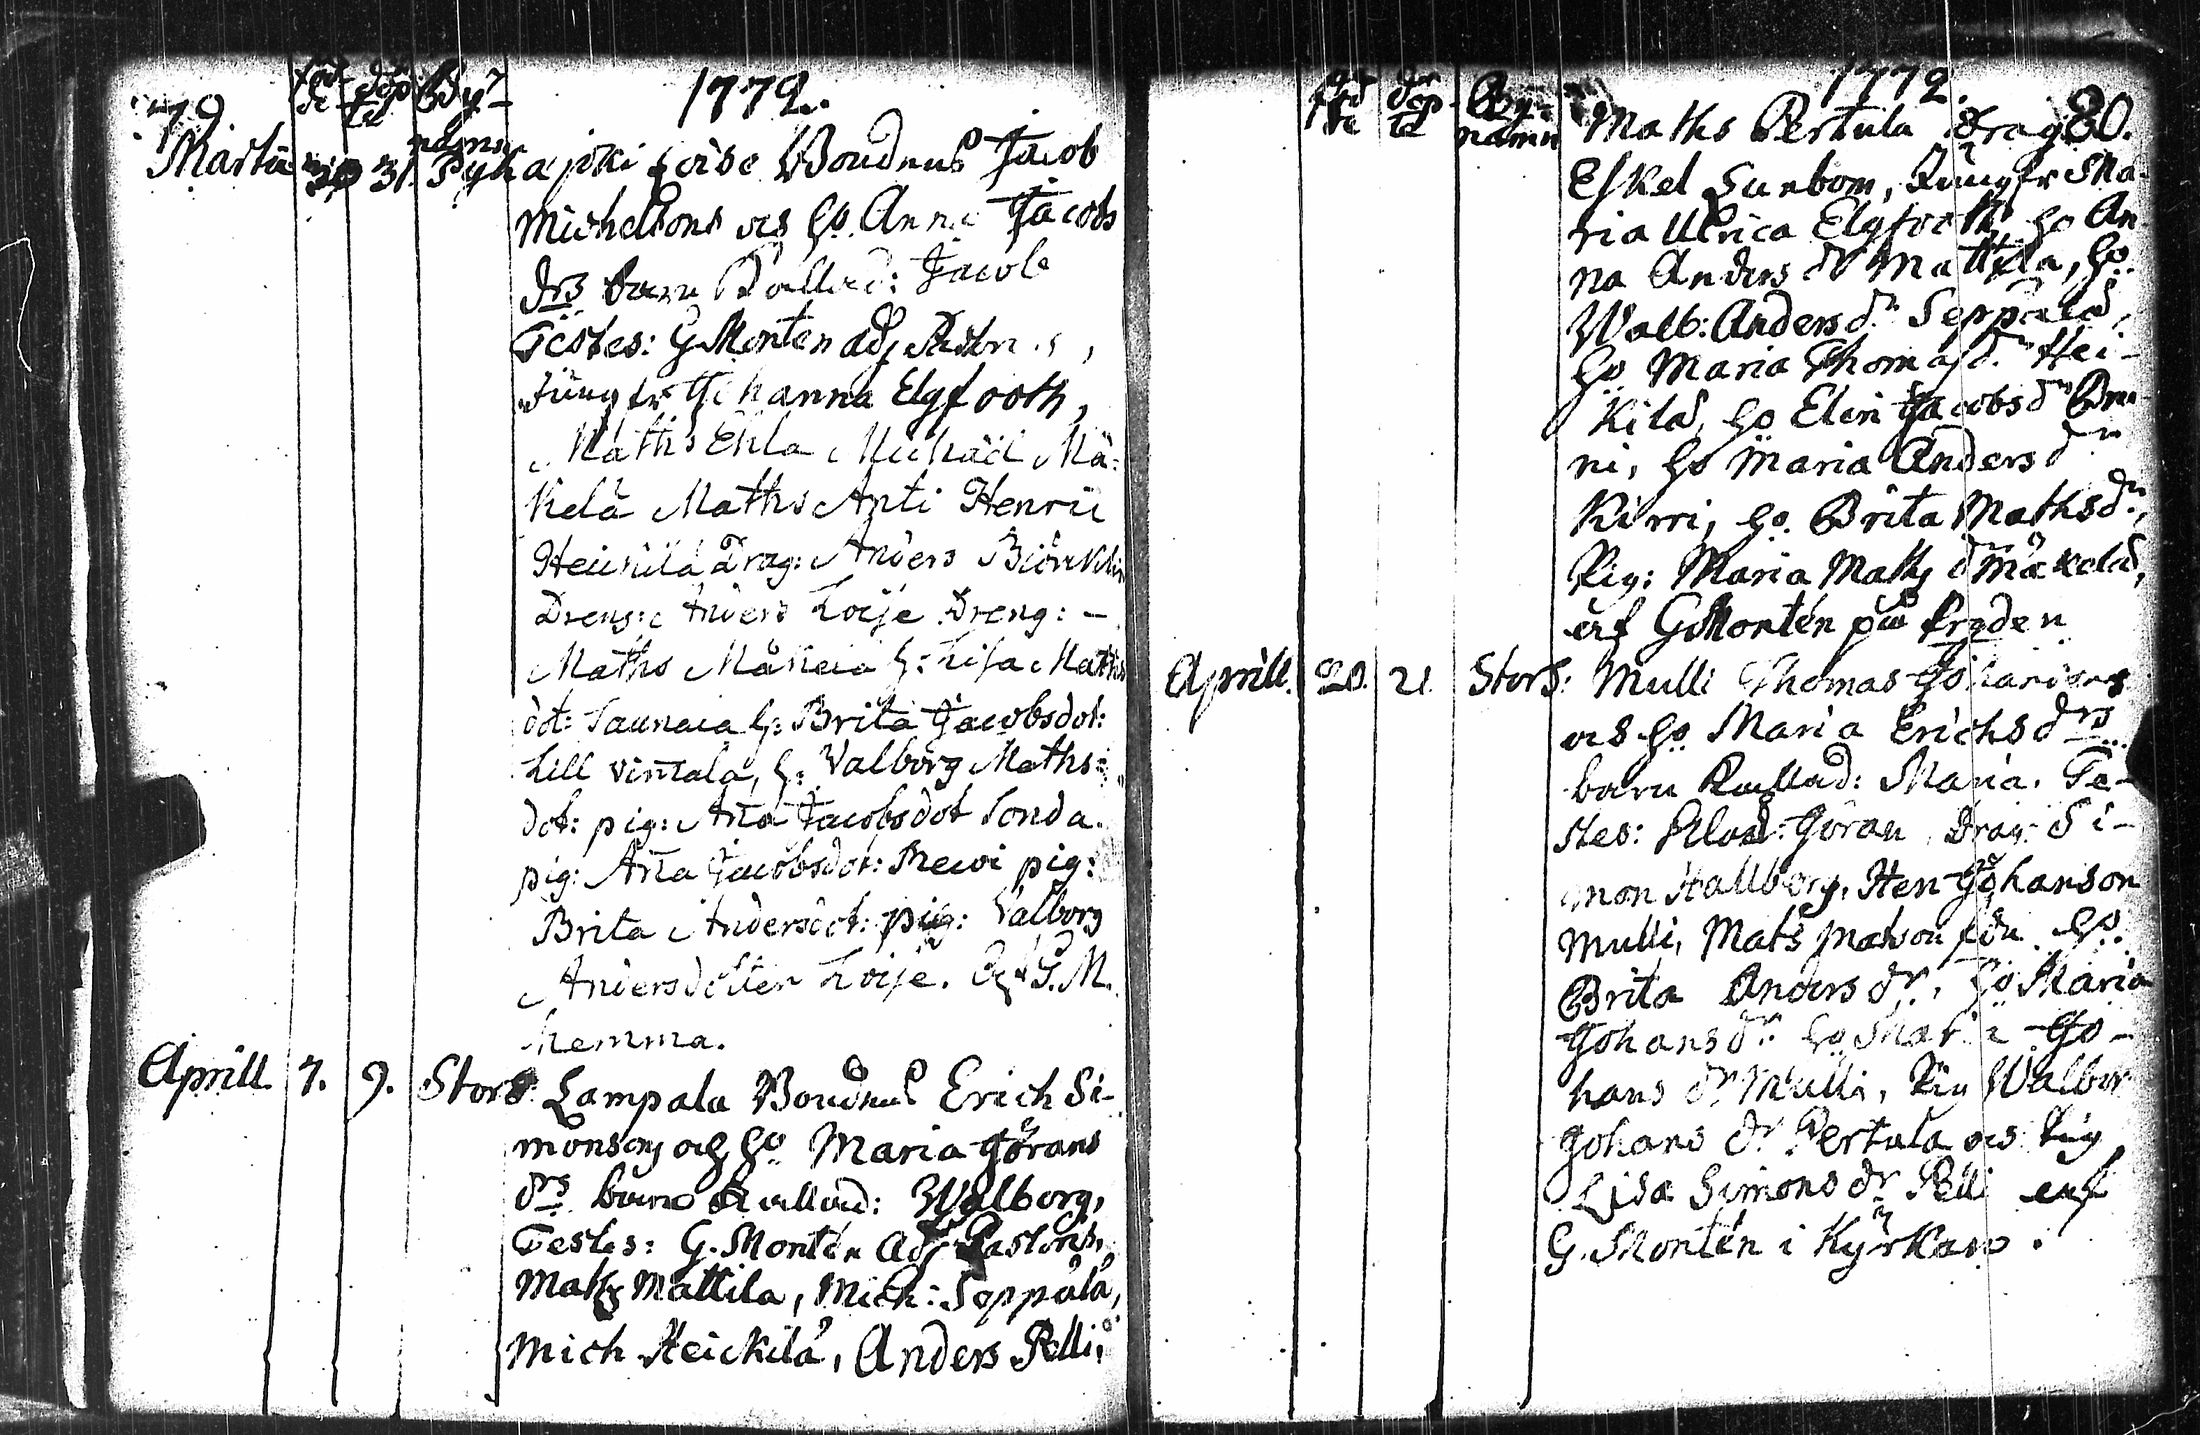 79 föd de döp te By- namn 1772.
Martii 30 31. Pyhajoki Loise Boudnus Jacob
Michelsons och ho. Anna Jacobs
drs barn Kallad: Jacob
Testes: G Monten adj Pastoris,
Jungfr Johanna Elgfooth,
Maths Ehla Michäel Mä-
kelä Maths Anti Henric
Heickilä Drag: Anders Biörklin
Dreng: Anders Loije Dreng: -
Maths Mäkelä h: Lisa Maths
dot: h: Brita Jacobsdot:
Lill vintala, h: Valborg Maths=
dot: pig: Aña Jacobsdot Sonda.
pig: Aña Jacobsdot: pig:
Brita Andersdot: pig: Valborg
Andersdotter Loije. Af G.M.
hemma.
Aprill. 7. 9. Stors Lampala Boudnus Erich Si-
monsons och ho Maria Görans
drs barn Kallad: Walborg,
Testes: G. Montén Adj Pastoris,
Maths Mattila, Mich: Seppälä,
Mich Heickilä, Anders Pelli,
föd de döp te By- namn 1772. 80.
Maths Pertula Drag
Eskel Lunbom, Jungfr Ma-
ria Ulrica Elgfooth, ho An-
na Anders dr Mattila, ho
Walb: Anders dr Seppälä,
ho Maria Thomas dr Hei-
kilä, ho Elin Jacobs dr
ni, ho Maria Anders dr
Kirri, ho. Brita Maths dr,
Pig: Maria Maths dr Mäkelä,
af G Montén på
Aprill. 20. 21. Stors: Mulli Thomas Johansons
och ho Maria Erichs drs
barn Kallad: Maria. Te-
stes: Göran, Drag: Si-
mon Hallborg, Hen Johanson
Mulli, Mats Matson ho
Brita Anders dr, ho Maria
Johans dr ho Maria Jo-
hans dr Mulli, Pig Walbor
Johans dr Pertula och Pig
Lisa Simons dr Pelli af
G. Montén i Kyrkan.